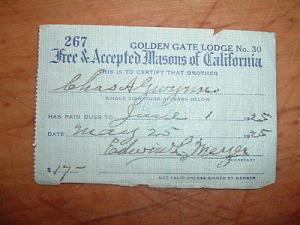 267 GOLDEN GATE LODGE No. 30
Free & Accepted Masons of California
THIS IS TO CERTIFY THAT BROTHER
Chas A Gwynn
WHOSE SIGNATURE APPEARS BELOW
HAS PAID DUES TO June 1 1925
DATE May 25 1925
Edwin L. Meyer
SECRETARY
$ 17.-
NOT VALID UNLESS SIGNED BY MEMBER